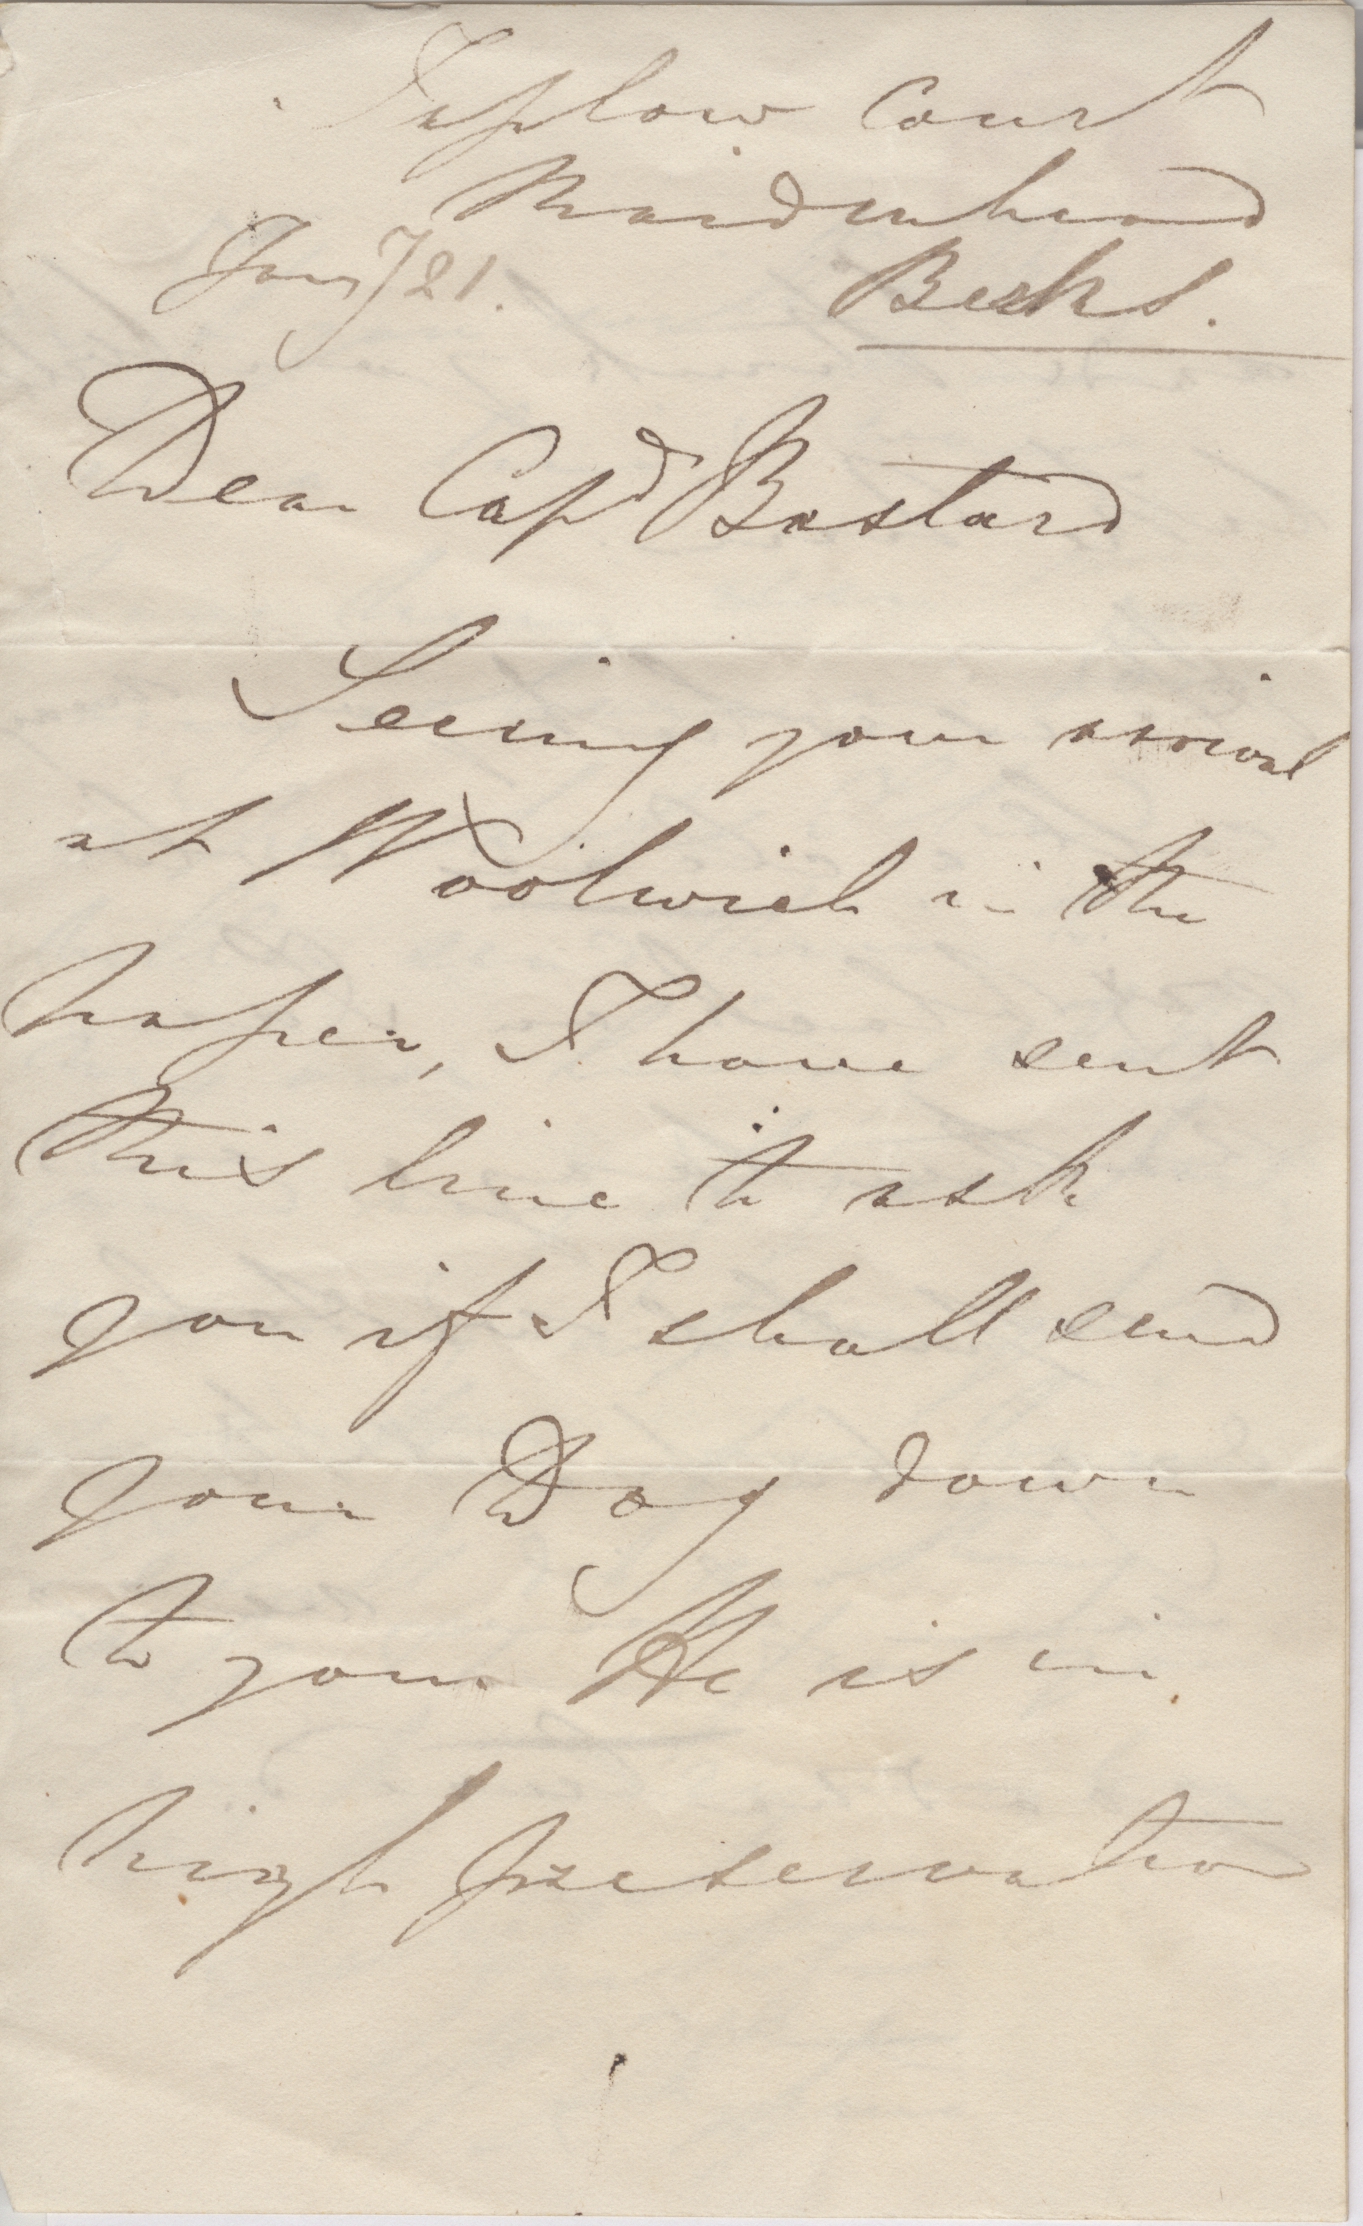 Taplow Court
Maidenhead
Jany 21. Berks.
Dear Capt Bastard
Seeing your arrival
at Woolwich in the
paper, I have sent
this line to ask
you if I shall send
your Dog down
to you. He is in
high preservation